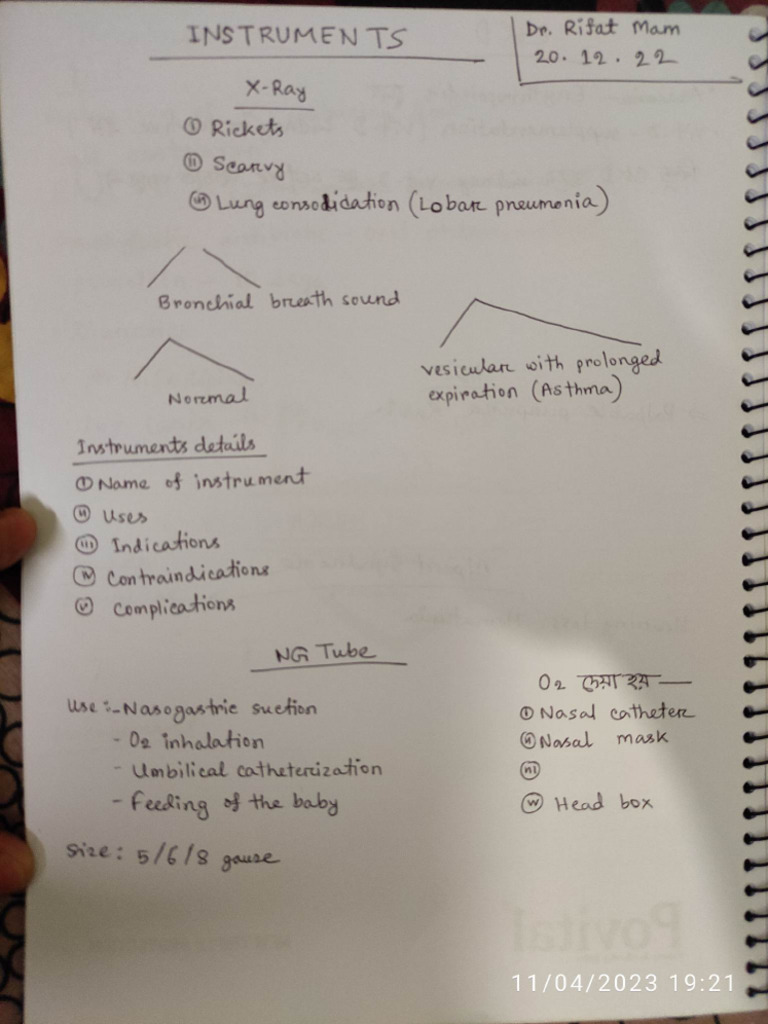 INSTRUMENTS
Dr. Rifat Mam
20.12.22
X-Ray
(i) Rickets
(ii) Scarvy
(iii) Lung consolidation (Lobar pneumonia)
Bronchial breath sound
Normal
vesicular with prolonged
expiration (Asthma)
Instruments details
(i) Name of instrument
(ii) Uses
(iii) Indications
(iv) Contraindications
(v) Complications
NG Tube
Use:- Nasogastric suction
- O2 inhalation
- Umbilical catheterization
- Feeding of the baby
Size: 5/6/8 gause
O2 দেয়া হয় —
(i) Nasal catheter
(ii) Nasal mask
(iii)
(iv) Head box
Povital
11/04/2023 19:21